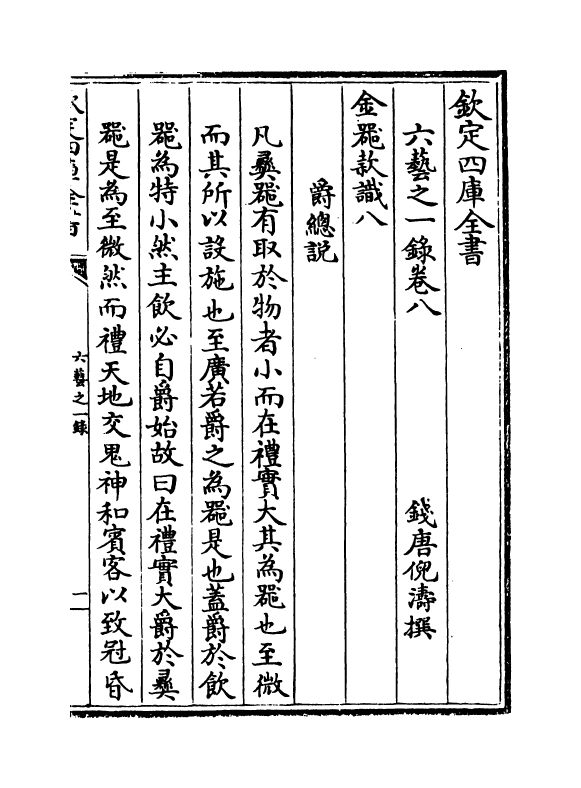 欽定四庫全書
六藝之一錄卷八
錢唐倪濤撰
金器款識八
爵總説
凡彝器有取於物者小而在禮實大其為器也至微
而其所以設施也至廣若爵之為器是也蓋爵於飲
器為特小然主飲必自爵始故曰在禮實大爵於彝
器是為至微然而禮天地交鬼神和賓客以致冠昏
六藝之一錄
一